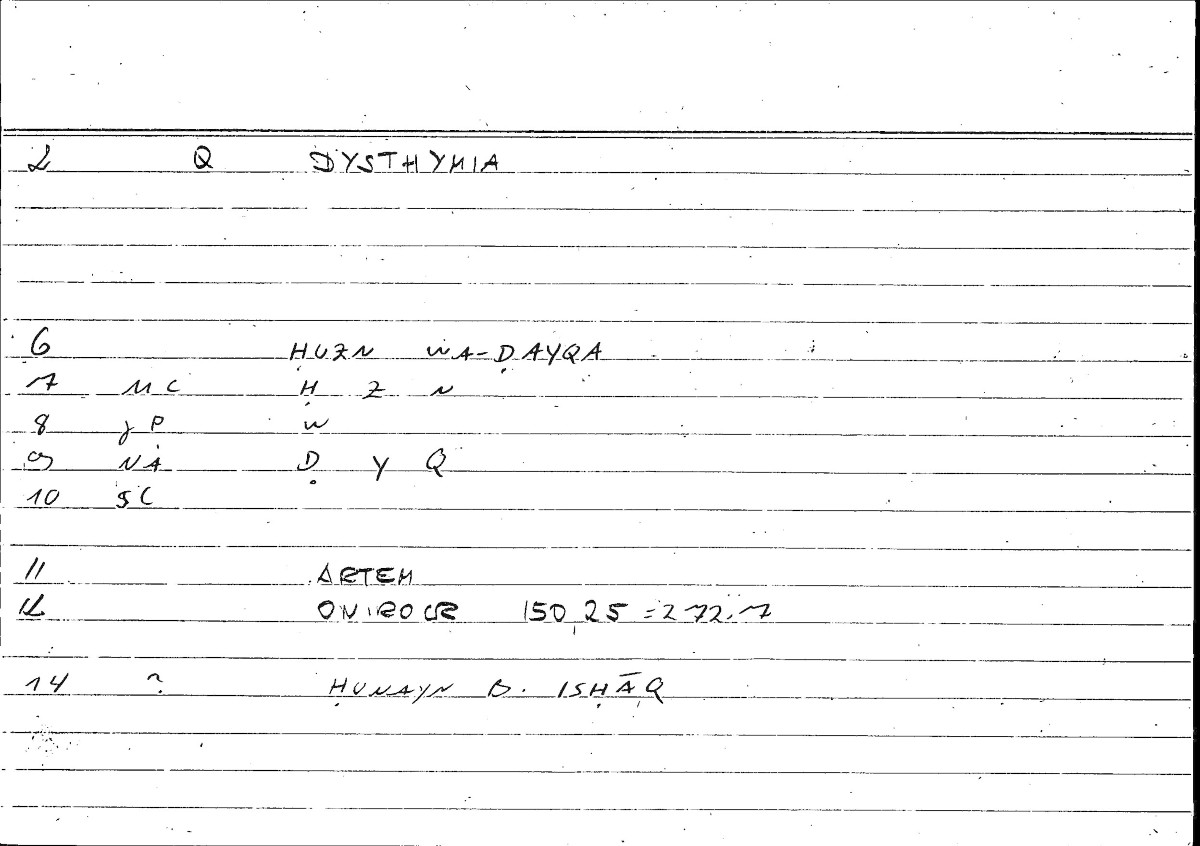 2 Q DYSTHYMIA
6 ḤUZN WA-ḌAYQA
7 MC Ḥ Z N
8 JP W
9 NA Ḍ Y Q
10 SC
11 ARTEM
12 ONIROCR 150,25 = 272.7
14 ? ḤUNAYN B. ISḤĀQ